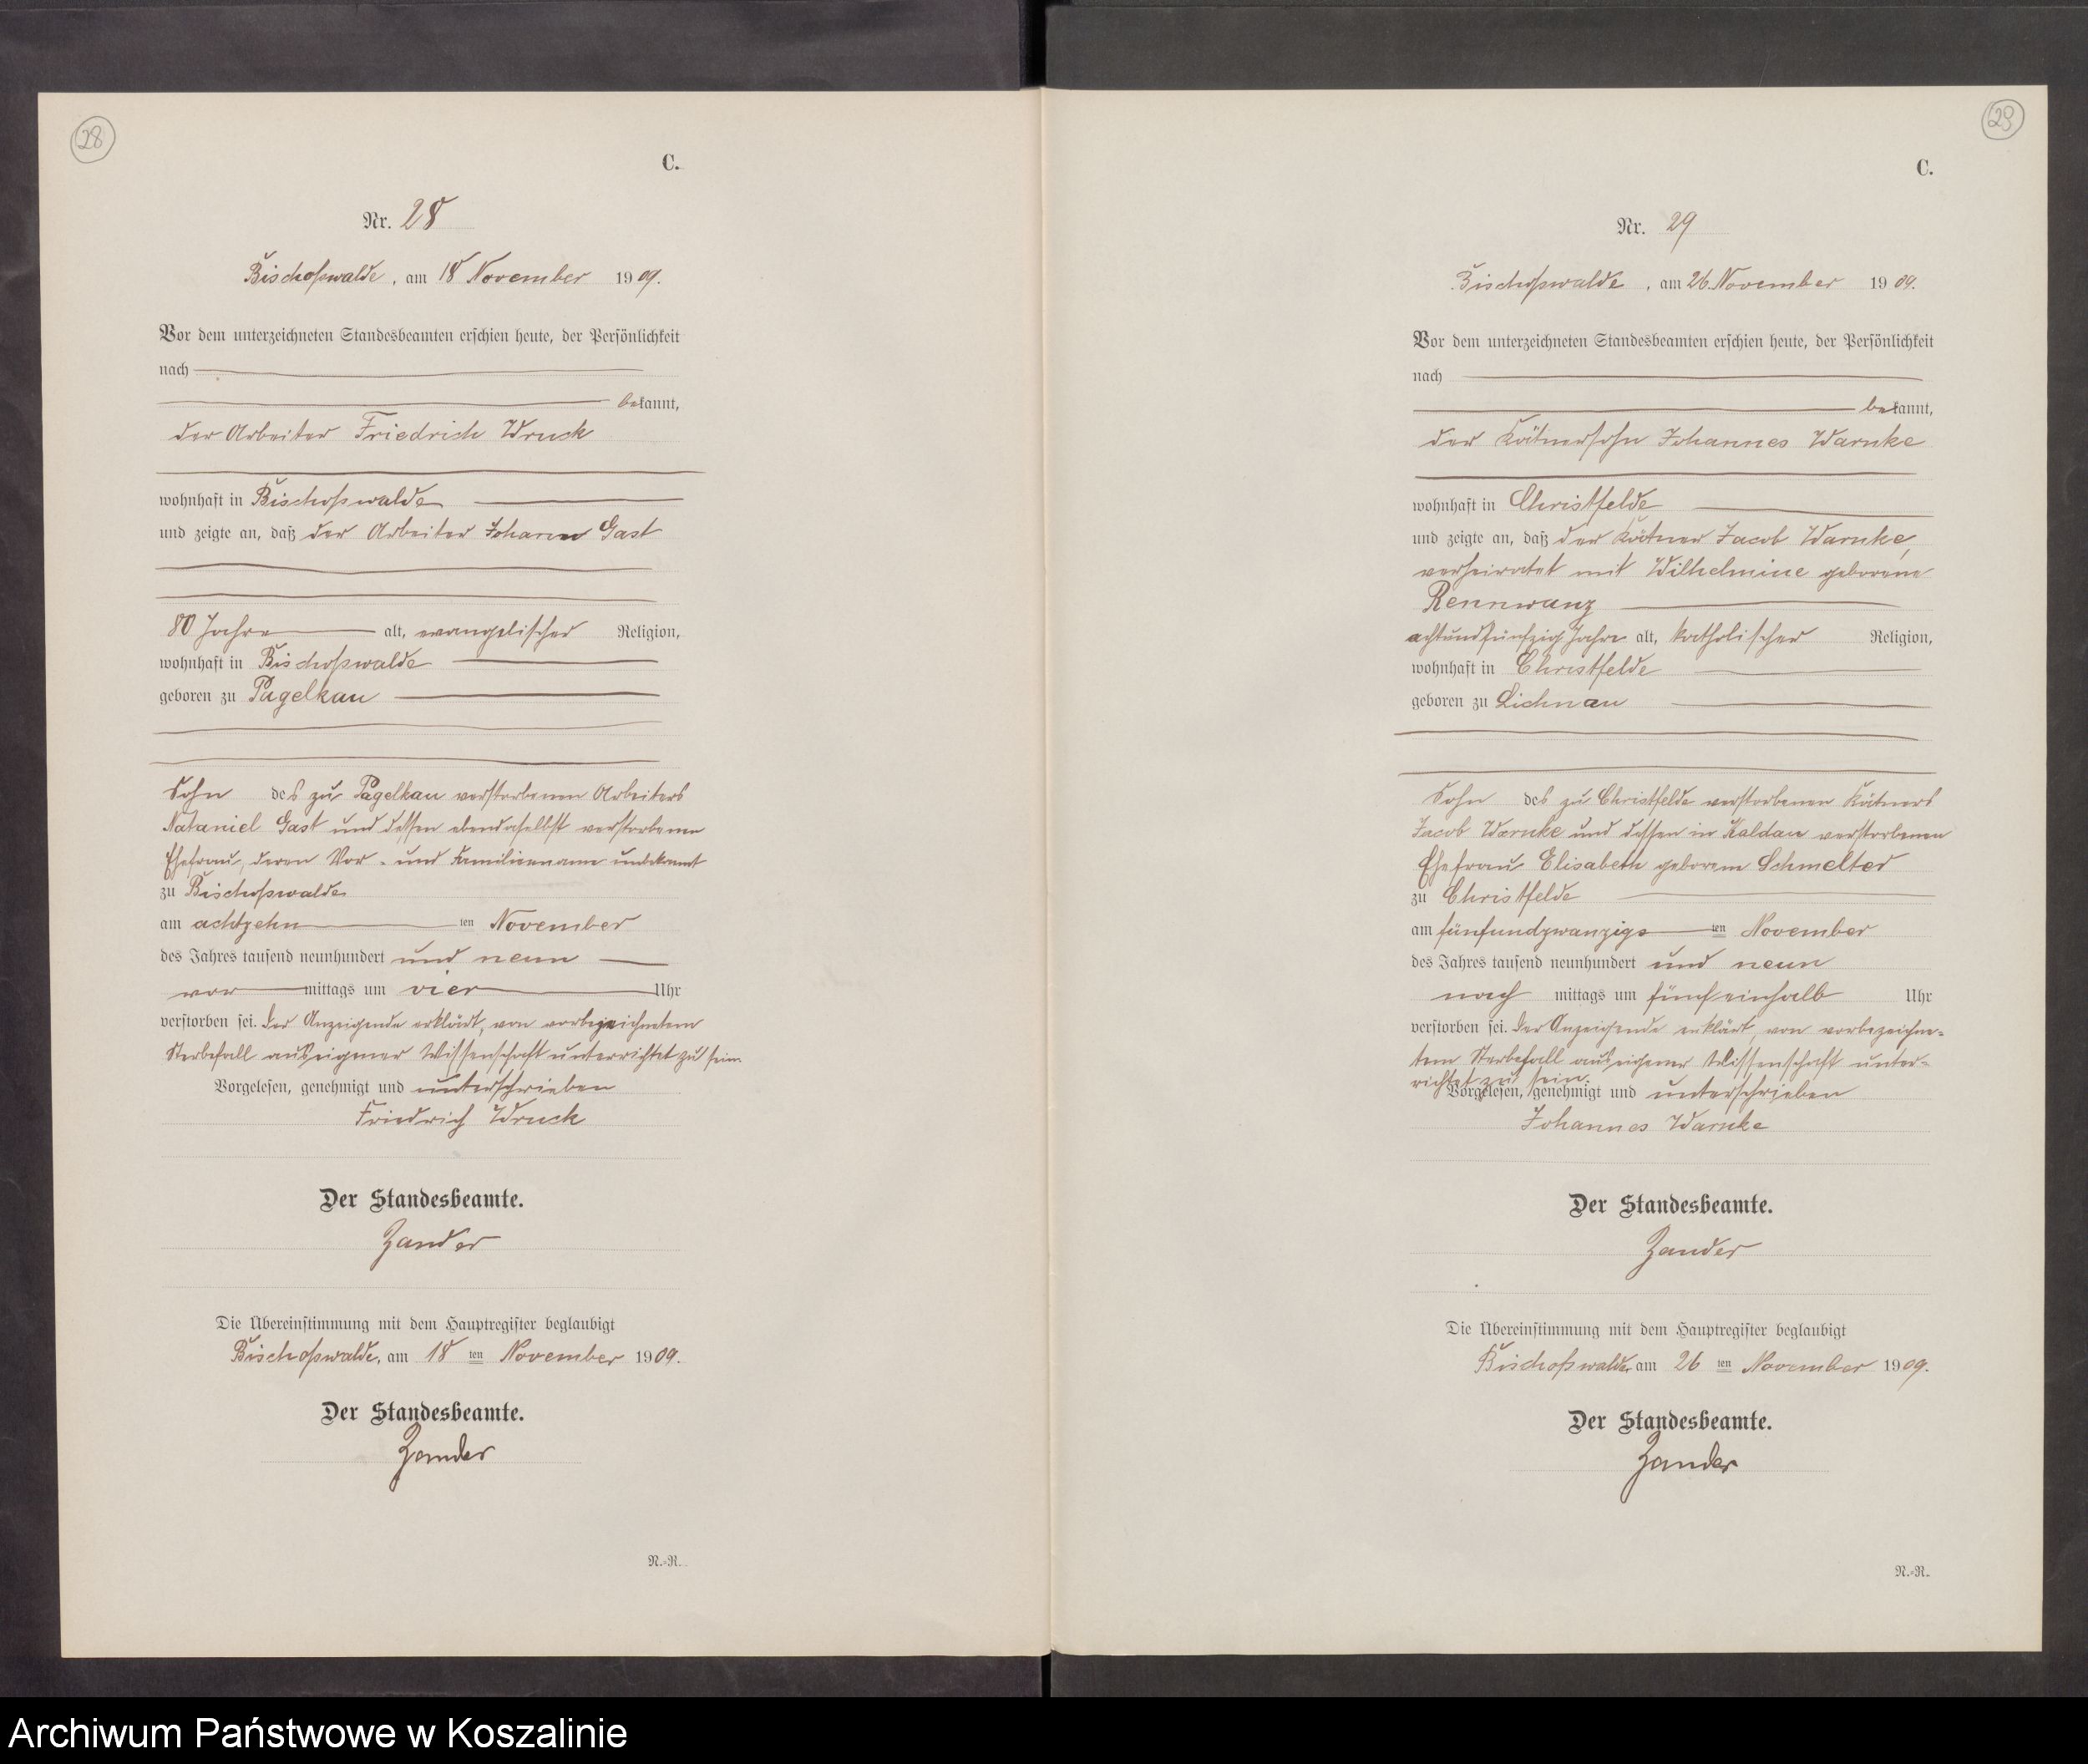 28
C.
Nr. 28
Bischofswalde, am 18 November 1909.
Vor dem unterzeichneten Standesbeamten erschien heute, der Persönlichkeit
nach
bekannt,
der Arbeiter Friedrich Wruck
wohnhaft in Bischofswalde
und zeigte an, daß der Arbeiter Johann Gast
80 Jahre alt, evangelischer Religion,
wohnhaft in Bischofswalde
geboren zu Pagelkau
Sohn des zu Pagelkau verstorbenen Arbeiters
Nataniel Gast und dessen ebendaselbst verstorbenen
Ehefrau, deren Vor- und Familienname unbekannt
zu Bischofswalde
am achtzehnten November
des Jahres tausend neunhundert und neun
vormittags um vier Uhr
verstorben sei. Der Anzeigende erklärt, von vorbezeichnetem
Sterbefall aus eigener Wissenschaft unterrichtet zu sein.
Vorgelesen, genehmigt und unterschrieben
Friedrich Wruck
Der Standesbeamte.
Zander
Die Übereinstimmung mit dem Hauptregister beglaubigt
Bischofswalde, am 18ten November 1909.
Der Standesbeamte.
Zander
N.-R.
29
C.
Nr. 29
Bischofswalde, am 26. November 1909.
Vor dem unterzeichneten Standesbeamten erschien heute, der Persönlichkeit
nach
bekannt,
der Kätnersohn Johannes Warnke
wohnhaft in Christfelde
und zeigte an, daß der Kätner Jacob Warnke,
verheiratet mit Wilhelmine geborene
Rennwanz
achtundfünfzig Jahre alt, katholischer Religion,
wohnhaft in Christfelde
geboren zu Lichnau
Sohn des zu Christfelde verstorbenen Kätners
Jacob Warnke und dessen in Kaldau verstorbenen
Ehefrau Elisabeth geborene Schmelter
zu Christfelde
am fünfundzwanzigsten November
des Jahres tausend neunhundert und neun
nachmittags um fünfeinhalb Uhr
verstorben sei. Der Anzeigende erklärt, von vorbezeichne-
tem Sterbefall aus eigener Wissenschaft unter-
richtet zu sein.
Vorgelesen, genehmigt und unterschrieben
Johannes Warnke
Der Standesbeamte.
Zander
Die Übereinstimmung mit dem Hauptregister beglaubigt
Bischofswalde, am 26ten November 1909.
Der Standesbeamte.
Zander
N.-R.
Archiwum Państwowe w Koszalinie